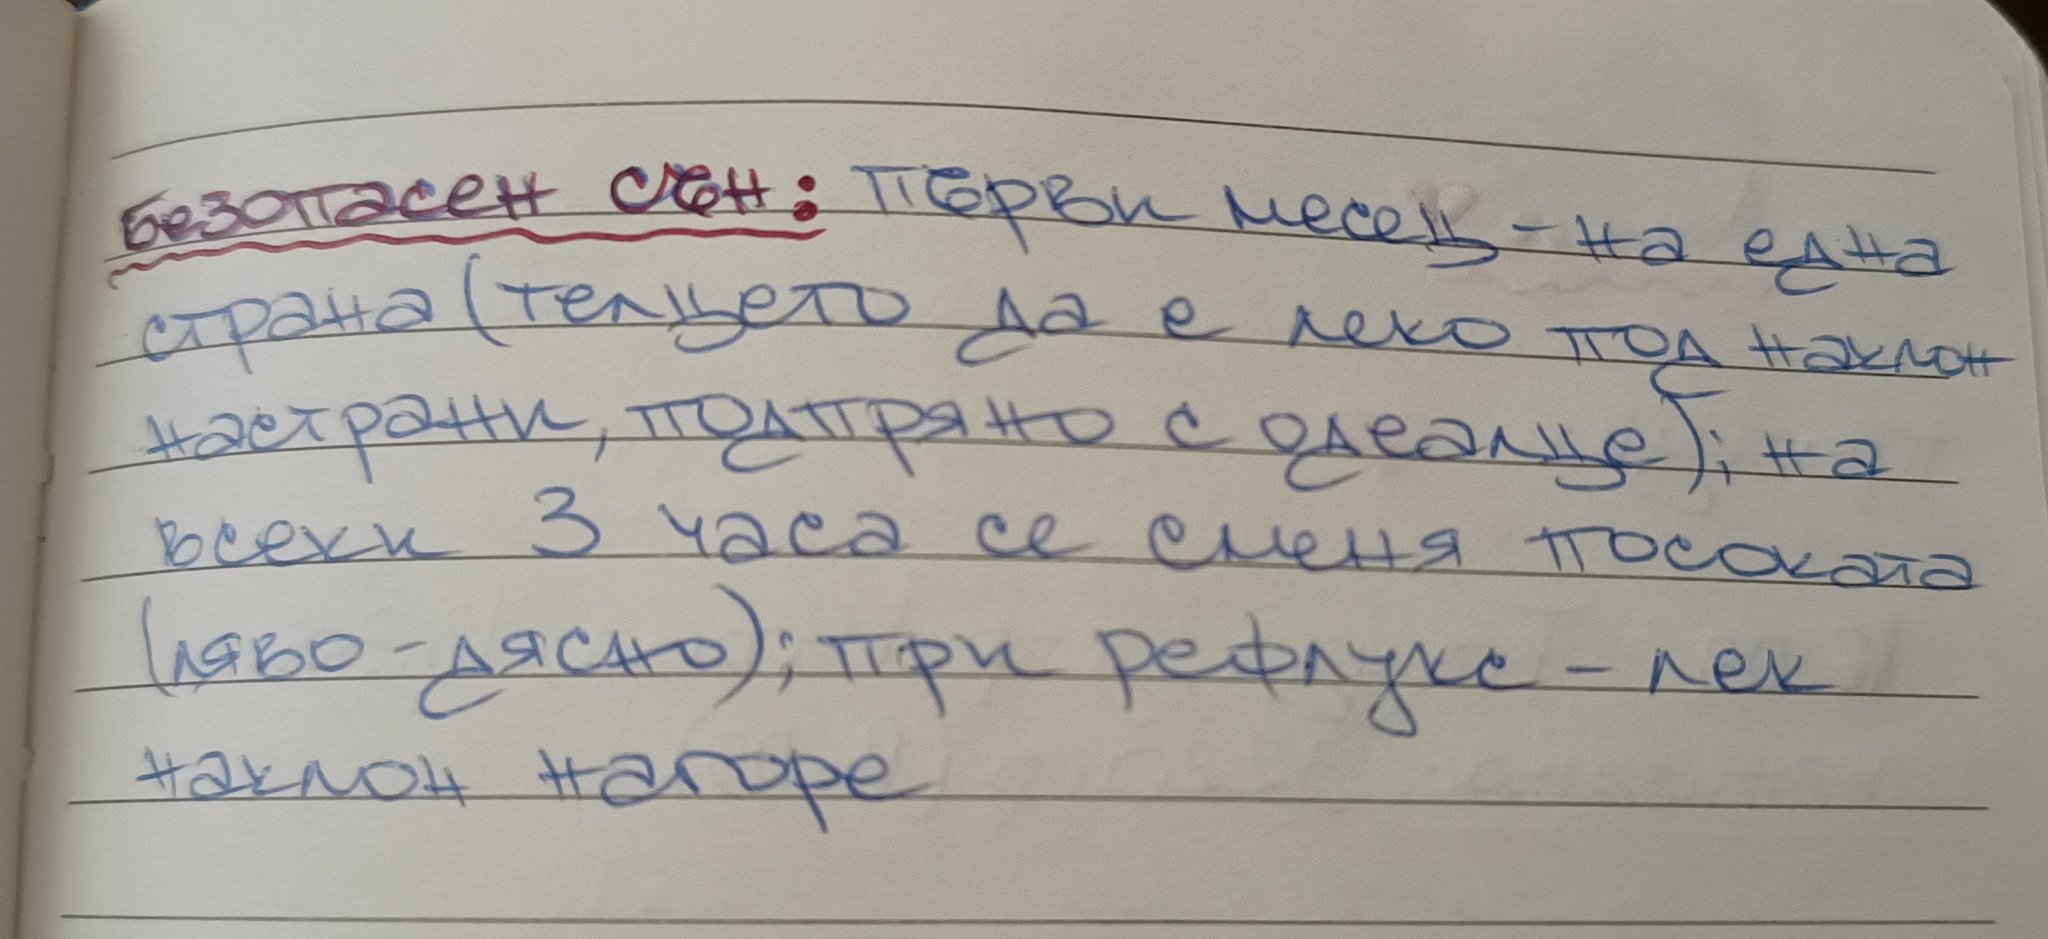 Безопасен сън: Първи месец - на една
страна (телцето да е леко под наклон
настрани, подпряно с одеалце); на
всеки 3 часа се сменя посоката
(ляво - дясно); при рефлукс - лек
наклон нагоре